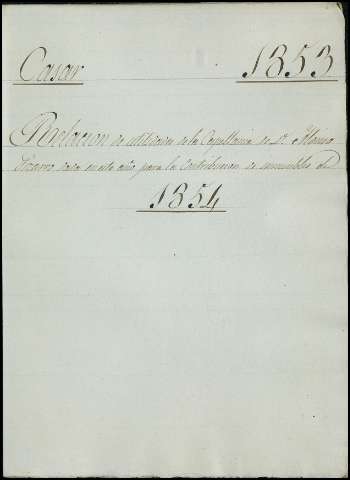 Casar 1853
Relacion de utilidades de la Capellania de Dn. Alonso
Pizarro dada en este año para la Contribucion de inmuebles de
1854